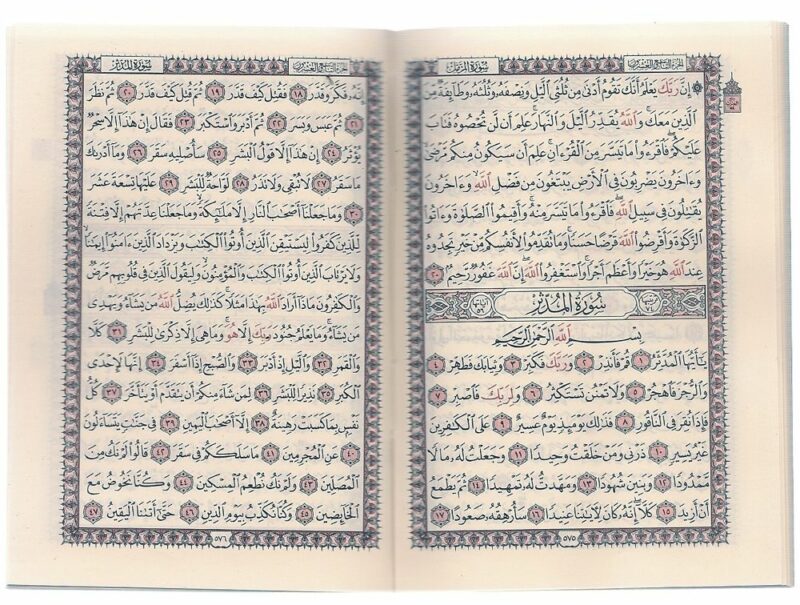 الجزء التاسع والعشرون
سورة المزمل
۞ إِنَّ رَبَّكَ يَعْلَمُ أَنَّكَ تَقُومُ أَدْنَىٰ مِن ثُلُثَىِ ٱلَّيْلِ وَنِصْفَهُۥ وَثُلُثَهُۥ وَطَآئِفَةٌ مِّنَ
ٱلَّذِينَ مَعَكَ ۚ وَٱللَّهُ يُقَدِّرُ ٱلَّيْلَ وَٱلنَّهَارَ ۚ عَلِمَ أَن لَّن تُحْصُوهُ فَتَابَ
عَلَيْكُمْ ۖ فَٱقْرَءُوا۟ مَا تَيَسَّرَ مِنَ ٱلْقُرْءَانِ ۚ عَلِمَ أَن سَيَكُونُ مِنكُم مَّرْضَىٰ ۙ
وَءَاخَرُونَ يَضْرِبُونَ فِى ٱلْأَرْضِ يَبْتَغُونَ مِن فَضْلِ ٱللَّهِ ۙ وَءَاخَرُونَ
يُقَٰتِلُونَ فِى سَبِيلِ ٱللَّهِ ۖ فَٱقْرَءُوا۟ مَا تَيَسَّرَ مِنْهُ ۚ وَأَقِيمُوا۟ ٱلصَّلَوٰةَ وَءَاتُوا۟
ٱلزَّكَوٰةَ وَأَقْرِضُوا۟ ٱللَّهَ قَرْضًا حَسَنًا ۚ وَمَا تُقَدِّمُوا۟ لِأَنفُسِكُم مِّنْ خَيْرٍ تَجِدُوهُ
عِندَ ٱللَّهِ هُوَ خَيْرًا وَأَعْظَمَ أَجْرًا ۚ وَٱسْتَغْفِرُوا۟ ٱللَّهَ ۖ إِنَّ ٱللَّهَ غَفُورٌ رَّحِيمٌۢ ٢٠
ترتيبها ٧٤ سُورَةُ الْمُدَّثِّرِ آياتها ٥٦
بِسْمِ ٱللَّهِ ٱلرَّحْمَٰنِ ٱلرَّحِيمِ
يَٰٓأَيُّهَا ٱلْمُدَّثِّرُ ١ قُمْ فَأَنذِرْ ٢ وَرَبَّكَ فَكَبِّرْ ٣ وَثِيَابَكَ فَطَهِّرْ ٤
وَٱلرُّجْزَ فَٱهْجُرْ ٥ وَلَا تَمْنُن تَسْتَكْثِرُ ٦ وَلِرَبِّكَ فَٱصْبِرْ ٧
فَإِذَا نُقِرَ فِى ٱلنَّاقُورِ ٨ فَذَٰلِكَ يَوْمَئِذٍ يَوْمٌ عَسِيرٌ ٩ عَلَى ٱلْكَٰفِرِينَ
غَيْرُ يَسِيرٍ ١٠ ذَرْنِى وَمَنْ خَلَقْتُ وَحِيدًا ١١ وَجَعَلْتُ لَهُۥ مَالًا
مَّمْدُودًا ١٢ وَبَنِينَ شُهُودًا ١٣ وَمَهَّدتُّ لَهُۥ تَمْهِيدًا ١٤ ثُمَّ يَطْمَعُ
أَنْ أَزِيدَ ١٥ كَلَّآ ۖ إِنَّهُۥ كَانَ لِءَايَٰتِنَا عَنِيدًا ١٦ سَأُرْهِقُهُۥ صَعُودًا ١٧
٥٧٥
الجزء التاسع والعشرون
سورة المدثر
إِنَّهُۥ فَكَّرَ وَقَدَّرَ ١٨ فَقُتِلَ كَيْفَ قَدَّرَ ١٩ ثُمَّ قُتِلَ كَيْفَ قَدَّرَ ٢٠ ثُمَّ نَظَرَ
٢١ ثُمَّ عَبَسَ وَبَسَرَ ٢٢ ثُمَّ أَدْبَرَ وَٱسْتَكْبَرَ ٢٣ فَقَالَ إِنْ هَٰذَآ إِلَّا سِحْرٌ
يُؤْثَرُ ٢٤ إِنْ هَٰذَآ إِلَّا قَوْلُ ٱلْبَشَرِ ٢٥ سَأُصْلِيهِ سَقَرَ ٢٦ وَمَآ أَدْرَىٰكَ
مَا سَقَرُ ٢٧ لَا تُبْقِى وَلَا تَذَرُ ٢٨ لَوَّاحَةٌ لِّلْبَشَرِ ٢٩ عَلَيْهَا تِسْعَةَ عَشَرَ
٣٠ وَمَا جَعَلْنَآ أَصْحَٰبَ ٱلنَّارِ إِلَّا مَلَٰٓئِكَةً ۙ وَمَا جَعَلْنَا عِدَّتَهُمْ إِلَّا فِتْنَةً
لِّلَّذِينَ كَفَرُوا۟ لِيَسْتَيْقِنَ ٱلَّذِينَ أُوتُوا۟ ٱلْكِتَٰبَ وَيَزْدَادَ ٱلَّذِينَ ءَامَنُوٓا۟ إِيمَٰنًا ۙ
وَلَا يَرْتَابَ ٱلَّذِينَ أُوتُوا۟ ٱلْكِتَٰبَ وَٱلْمُؤْمِنُونَ ۙ وَلِيَقُولَ ٱلَّذِينَ فِى قُلُوبِهِم مَّرَضٌ
وَٱلْكَٰفِرُونَ مَاذَآ أَرَادَ ٱللَّهُ بِهَٰذَا مَثَلًا ۚ كَذَٰلِكَ يُضِلُّ ٱللَّهُ مَن يَشَآءُ وَيَهْدِى
مَن يَشَآءُ ۚ وَمَا يَعْلَمُ جُنُودَ رَبِّكَ إِلَّا هُوَ ۚ وَمَا هِىَ إِلَّا ذِكْرَىٰ لِلْبَشَرِ ٣١ كَلَّا
وَٱلْقَمَرِ ٣٢ وَٱلَّيْلِ إِذْ أَدْبَرَ ٣٣ وَٱلصُّبْحِ إِذَآ أَسْفَرَ ٣٤ إِنَّهَا لَإِحْدَى
ٱلْكُبَرِ ٣٥ نَذِيرًا لِّلْبَشَرِ ٣٦ لِمَن شَآءَ مِنكُمْ أَن يَتَقَدَّمَ أَوْ يَتَأَخَّرَ ٣٧ كُلُّ
نَفْسٍۭ بِمَا كَسَبَتْ رَهِينَةٌ ٣٨ إِلَّآ أَصْحَٰبَ ٱلْيَمِينِ ٣٩ فِى جَنَّٰتٍ يَتَسَآءَلُونَ
٤٠ عَنِ ٱلْمُجْرِمِينَ ٤١ مَا سَلَكَكُمْ فِى سَقَرَ ٤٢ قَالُوا۟ لَمْ نَكُ مِنَ
ٱلْمُصَلِّينَ ٤٣ وَلَمْ نَكُ نُطْعِمُ ٱلْمِسْكِينَ ٤٤ وَكُنَّا نَخُوضُ مَعَ
ٱلْخَآئِضِينَ ٤٥ وَكُنَّا نُكَذِّبُ بِيَوْمِ ٱلدِّينِ ٤٦ حَتَّىٰٓ أَتَىٰنَا ٱلْيَقِينُ ٤٧
٥٧٦